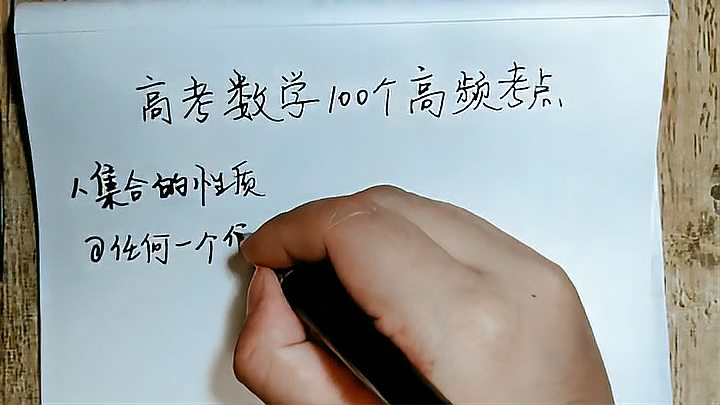 高考数学100个高频考点
1、集合的性质
①任何一个